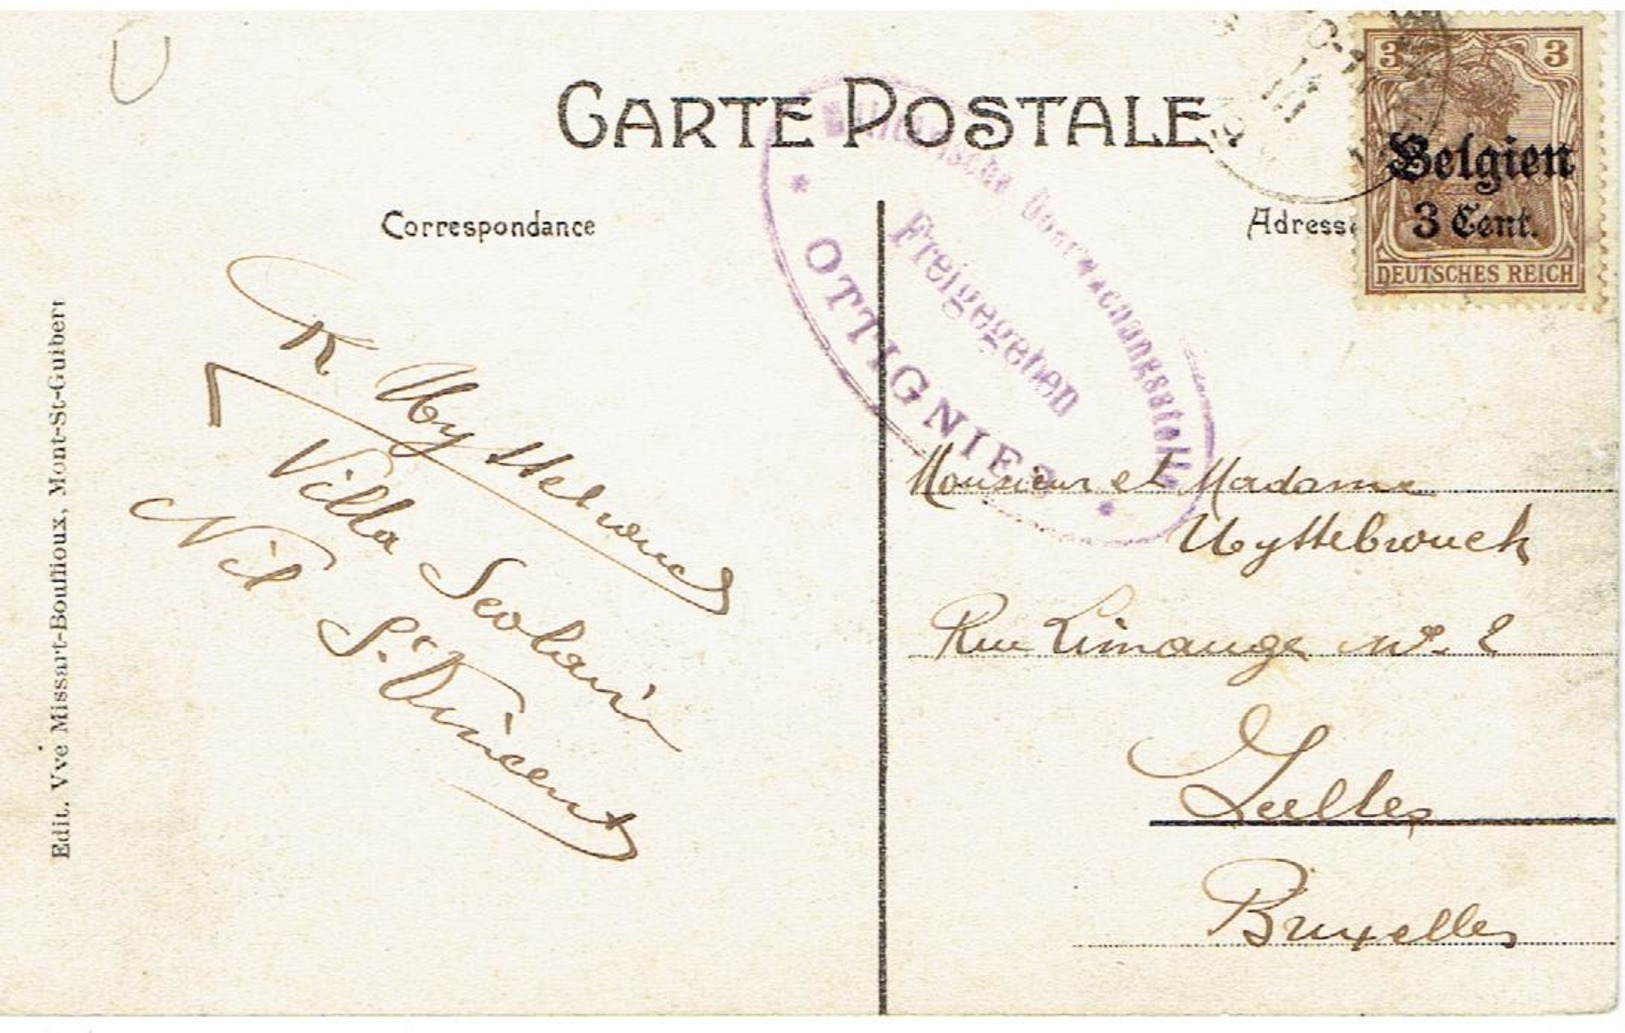 CARTE POSTALE
Correspondance
Adresse
3 3
Belgien
3 Cent.
DEUTSCHES REICH
Militärische Überwachungsstelle
Freigegeben
OTTIGNIES
Edit. Vve Missart-Bouffioux, Mont-St-Guibert
Uyttebrouck
Villa
Nil St Vincent
Monsieur et Madame
Uyttebrouck
Rue Limauge No. 2
Ixelles
Bruxelles